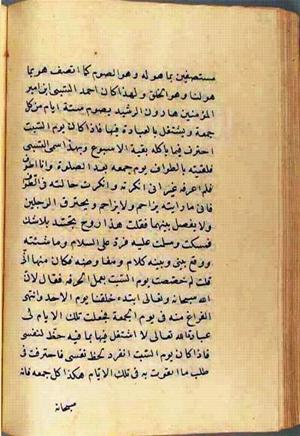 مستصفين بما هو له وهو الصوم كما اتصف هو بما
هو لنا وهو الخلق ولهذا كان احمد السبتي ابن امير
المؤمنين هارون الرشيد يصوم ستة ايام من كل
جمعة ويشتغل بالعبادة فيها فاذا كان يوم السبت
احترف فيما ياكله بقية الاسبوع وبهذا سمي السبتي
فلقيته بالطواف يوم جمعه بعد الصلوة وانا اطوف
فلم اعرفه غير اني انكرته وانكرت حالته في الطواف
فاني ما رايته يزاحم ولا يزاحم ويخترق الرجلين
ولا يفصل بينهما فقلت هذا روح تجسد بلا شك
فمسكته وسلمت عليه فرد علي السلام وماشيته
ووقع بيني وبينه كلام ومفاوضه فكان منها اني
قلت لم خصصت يوم السبت بعمل الحرفه فقال لان
الله سبحانه وتعالى ابتدء خلقنا يوم الاحد وانتهى
الفراغ منه في يوم الجمعة فجعلت تلك الايام لي
عبادة لله تعالى لا اشتغل فيها بما فيه حظ لنفسي
فاذا كان يوم السبت انفرد لحظ نفسي فاحترفت في
طلب ما اتقوت به في تلك الايام هكذا كل جمعه فانه
سبحانه